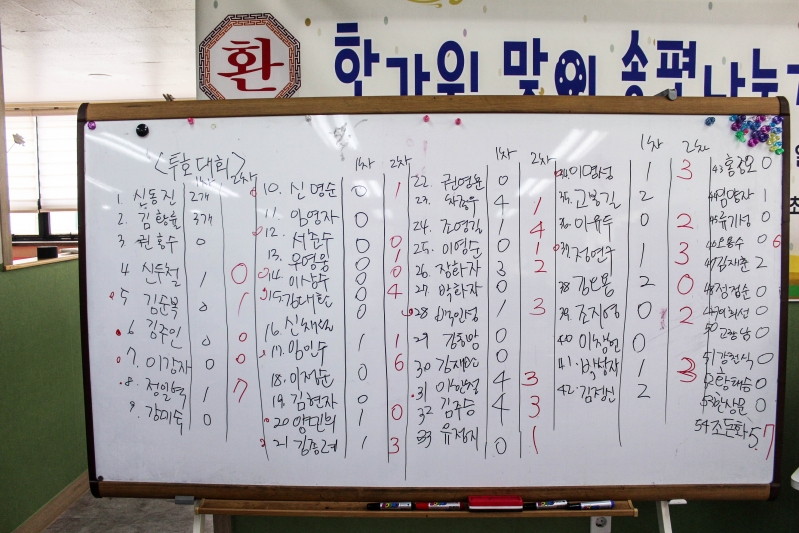 환
한가위 맞이 송편나누기
<투호대회>
1차 2차
1. 신동진 2개
2. 김학율 3개
3 권홍수 0
4 신두철 1 0
5 김순복 0 1
6 김주인 0 0
7. 이강자 0 0
8. 정일혁 1 7
9. 강미숙 0
1차 2차
10. 신영순 0 1
11. 임영자 0
12. 서순수 0 0
13. 우영웅 0 1
14 이상수 0 0
15 김대학 0 4
16. 신채선 0
17. 임인수 1 1
6
18. 이정순 0
19. 김현자 0
20 양민의 1 0
21 김종례 1 3
1차 2차
22. 권영문 0
23. 4 1
24. 조영길 1 4
25. 이영순 0 1
26. 장화자 3 2
27 박화자 0
28 1 3
29 김동암 0
30 0
31 4 3
32 김주승 4 3
33 유정지 0 1
1차 2차
34. 이명성 1 3
35. 고봉길 2
36 이유두 0 2
37. 정연수 1 3
38 2 0
39. 조지영 0 2
40 이창헌 0
41. 박성자 1 3
42. 김정신 2
43 홍 0
44 임영자 1
45 류기성 0
46 수 0 6
47 김재춘 2
48 정점순 0
49 이희선 0
50 고광남 0
51 강헌식 0
52 황태승 0
53 한상운 0
54 조돈화 5. 7